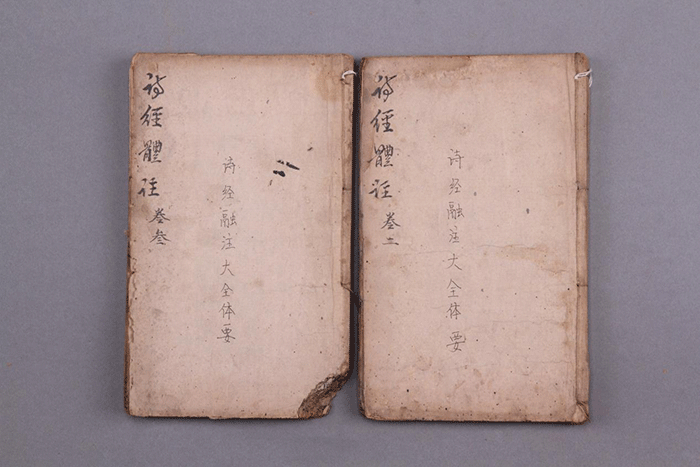 詩經體註 卷叁
诗经融注大全体要
詩經體註 卷二
诗经融注大全体要